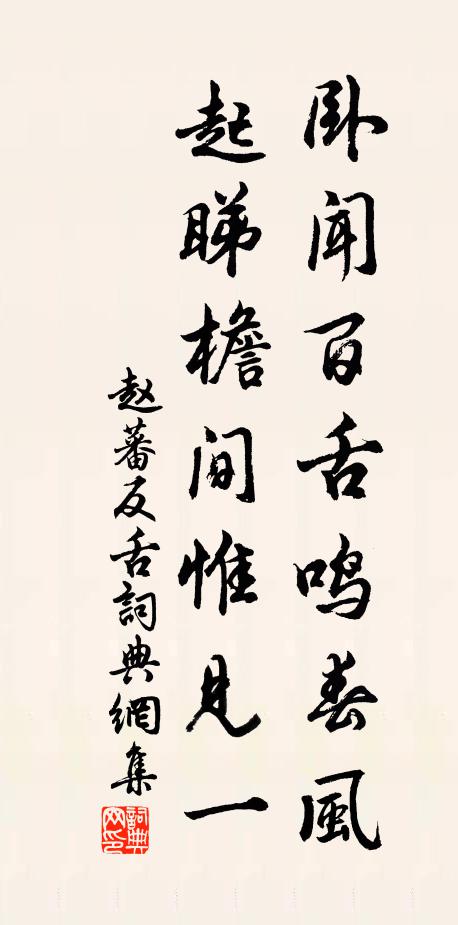 卧闻百舌鸣春风
起睇檐间惟见一
赵蕃反舌詞典網集
詞典网印